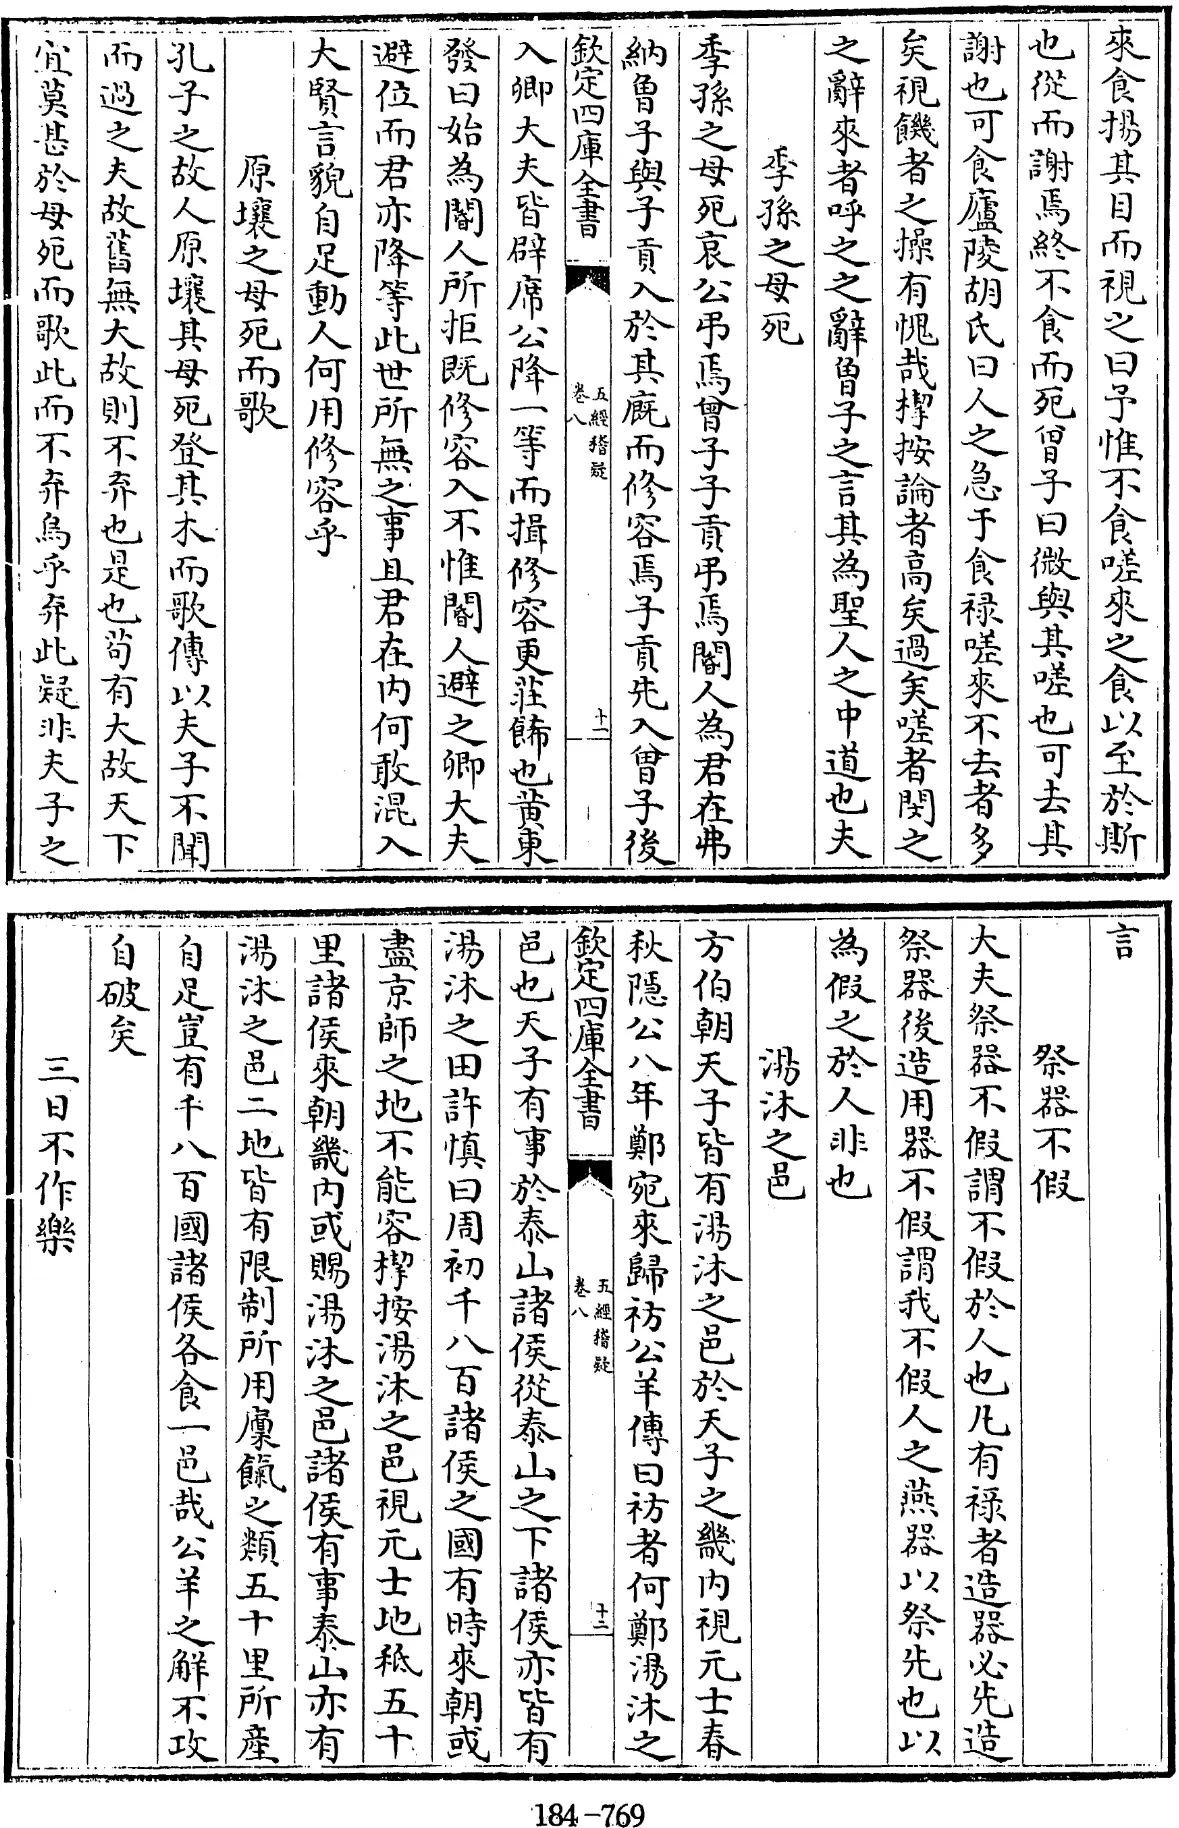 來食揚其目而視之曰予惟不食嗟來之食以至於斯
也從而謝焉終不食而死曾子曰微與其嗟也可去其
謝也可食廬陵胡氏曰人之急于食祿嗟來不去者多
矣視饑者之操有愧哉㮮按論者高矣過矣嗟者閔之
之辭來者呼之之辭曾子之言其為聖人之中道也夫
季孫之母死
季孫之母死哀公弔焉曾子子貢弔焉閽人為君在弗
納曾子與子貢入於其廐而修容焉子貢先入曾子後
欽定四庫全書
五經稽疑
卷八
十一
入卿大夫皆辟席公降一等而揖修容更莊餙也黄東
發曰始為閽人所拒既修容入不惟閽人避之卿大夫
避位而君亦降等此世所無之事且君在内何敢混入
大賢言貌自足動人何用修容乎
原壤之母死而歌
孔子之故人原壤其母死登其木而歌傳以夫子不聞
而過之夫故舊無大故則不弃也是也茍有大故天下
宜莫甚於母死而歌此而不弃烏乎弃此疑非夫子之
言
祭器不假
大夫祭器不假謂不假於人也凡有祿者造器必先造
祭器後造用器不假謂我不假人之燕器以祭先也以
為假之於人非也
湯沐之邑
方伯朝天子皆有湯沐之邑於天子之畿内視元士春
秋隱公八年鄭宛來歸祊公羊傳曰祊者何鄭湯沐之
欽定四庫全書
五經稽疑
卷八
十二
邑也天子有事於泰山諸侯從泰山之下諸侯亦皆有
湯沐之田許慎曰周初千八百諸侯之國有時來朝或
盡京師之地不能容㮮按湯沐之邑視元士地秪五十
里諸侯來朝畿内或賜湯沐之邑諸侯有事泰山亦有
湯沐之邑二地皆有限制所用廪餼之類五十里所產
自足豈有千八百國諸侯各食一邑哉公羊之解不攻
自破矣
三日不作樂
184-769